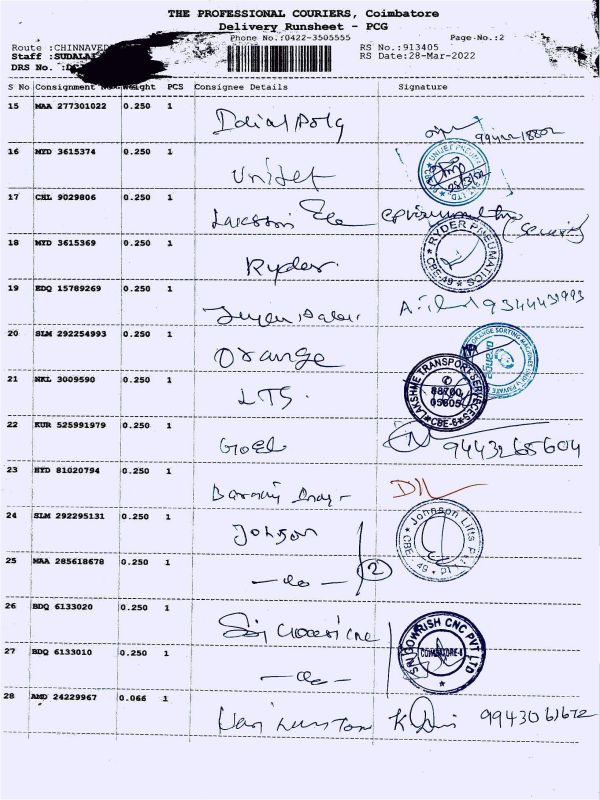 THE PROFESSIONAL COURIERS, Coimbatore
Delivery Runsheet - PCG
Phone No.:0422-3505555 Page No.:2
Route :CHINNAVED RS No.:913405
Staff :SUDALAI RS Date:28-Mar-2022
DRS No. :
S No Consignment No Weight PCS Consignee Details Signature
15 MAA 277301022 0.250 1
16 MYD 3615374 0.250 1 Unijet
UNIJET PNEUMA PVT LTD. CBE
17 CHL 9029806 0.250 1 (Security)
18 MYD 3615369 0.250 1 Ryder
RYDER PNEUMATICS CBE-49
19 EDQ 15789269 0.250 1 9344431993
20 SLM 292254993 0.250 1 Orange
ORANGE SORTING MACHINES (INDIA) PRIVATE
orange
21 NKL 3009590 0.250 1 LTS
LAKSHME TRANSPORT SERVICES CBE-6
88700 05605
22 KUR 525991979 0.250 1 Goel 9443265604
23 HYD 81020794 0.250 1
24 SLM 292295131 0.250 1 Johnson
Johnson Lifts P Ltd CBE 49
25 MAA 285618678 0.250 1 -do- 2
26 BDQ 6133020 0.250 1
SRI GOWRISH CNC PVT LTD
COIMBATORE-6
27 BDQ 6133010 0.250 1 -do-
28 AMD 24229967 0.066 1 9943061672